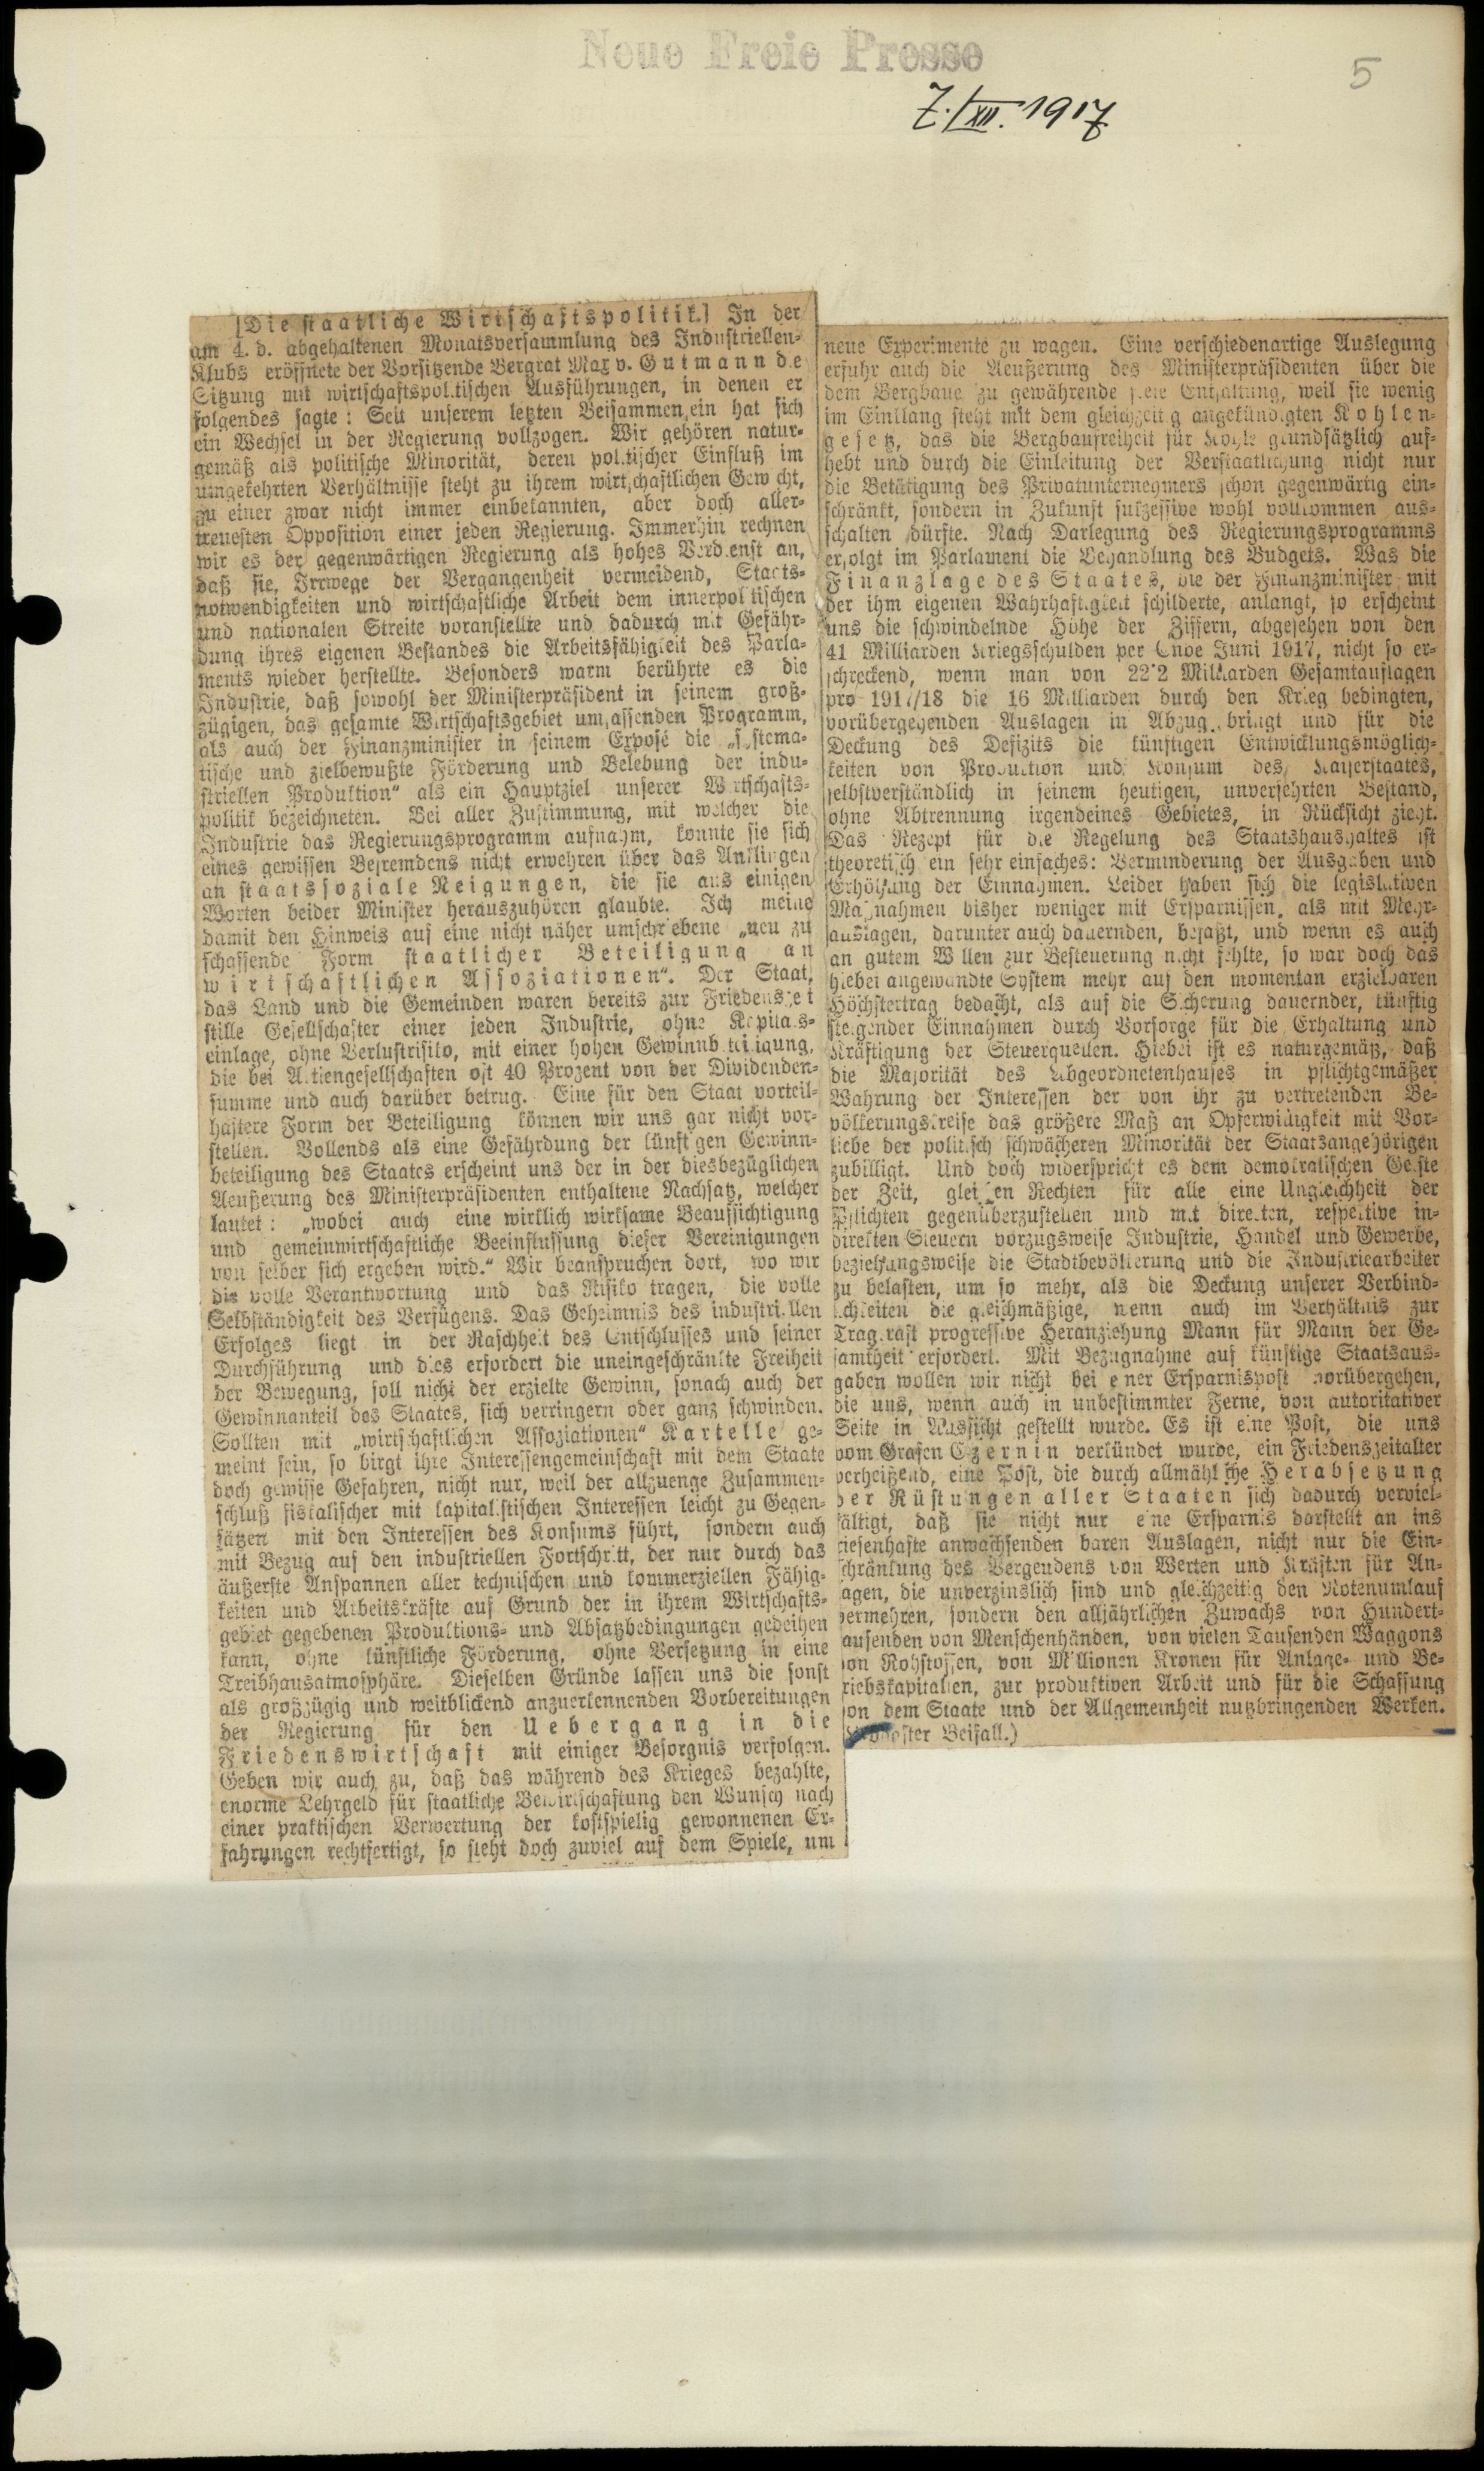 Neue Freie Presse
5
7./XII. 1917
[Die staatliche Wirtschaftspolitik.] In der
am 4. d. abgehaltenen Monatsversammlung des Industriellen-
Klubs eröffnete der Vorsitzende Bergrat Max v. Gutmann die
Sitzung mit wirtschaftspolitischen Ausführungen, in denen er
folgendes sagte: Seit unserem letzten Beisammensein hat sich
ein Wechsel in der Regierung vollzogen. Wir gehören natur-
gemäß als politische Minorität, deren politischer Einfluß im
umgekehrten Verhältnisse steht zu ihrem wirtschaftlichen Gewicht,
zu einer zwar nicht immer einbekannten, aber doch aller-
treuesten Opposition einer jeden Regierung. Immerhin rechnen
wir es der gegenwärtigen Regierung als hohes Verdienst an,
daß sie, Irrwege der Vergangenheit vermeidend, Staats-
notwendigkeiten und wirtschaftliche Arbeit dem innerpolitischen
und nationalen Streite voranstellte und dadurch mit Gefähr-
dung ihres eigenen Bestandes die Arbeitsfähigkeit des Parla-
ments wieder herstellte. Besonders warm berührte es die
Industrie, daß sowohl der Ministerpräsident in seinem groß-
zügigen, das gesamte Wirtschaftsgebiet umfassenden Programm,
als auch der Finanzminister in seinem Exposé die „systema-
tische und zielbewußte Förderung und Belebung der indu-
striellen Produktion“ als ein Hauptziel unserer Wirtschafts-
politik bezeichneten. Bei aller Zustimmung, mit welcher die
Industrie das Regierungsprogramm aufnahm, konnte sie sich
eines gewissen Befremdens nicht erwehren über das Anklingen
an staatssoziale Neigungen, die sie aus einigen
Worten beider Minister herauszuhören glaubte. Ich meine
damit den Hinweis auf eine nicht näher umschriebene „neu zu
schaffende Form staatlicher Beteiligung an
wirtschaftlichen Assoziationen“. Der Staat,
das Land und die Gemeinden waren bereits zur Friedenszeit
stille Gesellschafter einer jeden Industrie, ohne Kapitals-
einlage, ohne Verlustrisiko, mit einer hohen Gewinnbeteiligung,
die bei Aktiengesellschaften oft 40 Prozent von der Dividenden-
summe und auch darüber betrug. Eine für den Staat vorteil-
haftere Form der Beteiligung können wir uns gar nicht vor-
stellen. Vollends als eine Gefährdung der künftigen Gewinn-
beteiligung des Staates erscheint uns der in der diesbezüglichen
Aeußerung des Ministerpräsidenten enthaltene Nachsatz, welcher
lautet: „wobei auch eine wirklich wirksame Beaufsichtigung
und gemeinwirtschaftliche Beeinflussung dieser Vereinigungen
von selber sich ergeben wird.“ Wir beanspruchen dort, wo wir
die volle Verantwortung und das Risiko tragen, die volle
Selbständigkeit des Verfügens. Das Geheimnis des industriellen
Erfolges liegt in der Raschheit des Entschlusses und seiner
Durchführung und dies erfordert die uneingeschränkte Freiheit
der Bewegung, soll nicht der erzielte Gewinn, sonach auch der
Gewinnanteil des Staates, sich verringern oder ganz schwinden.
Sollten mit „wirtschaftlichen Assoziationen“ Kartelle ge-
meint sein, so birgt ihre Interessengemeinschaft mit dem Staate
doch gewisse Gefahren, nicht nur, weil der allzuenge Zusammen-
schluß fiskalischer mit kapitalistischen Interessen leicht zu Gegen-
sätzen mit den Interessen des Konsums führt, sondern auch
mit Bezug auf den industriellen Fortschritt, der nur durch das
äußerste Anspannen aller technischen und kommerziellen Fähig-
keiten und Arbeitskräfte auf Grund der in ihrem Wirtschafts-
gebiet gegebenen Produktions- und Absatzbedingungen gedeihen
kann, ohne künstliche Förderung, ohne Versetzung in eine
Treibhausatmosphäre. Dieselben Gründe lassen uns die sonst
als großzügig und weitblickend anzuerkennenden Vorbereitungen
der Regierung für den Uebergang in die
Friedenswirtschaft mit einiger Besorgnis verfolgen.
Geben wir auch zu, daß das während des Krieges bezahlte,
enorme Lehrgeld für staatliche Bewirtschaftung den Wunsch nach
einer praktischen Verwertung der kostspielig gewonnenen Er-
fahrungen rechtfertigt, so steht doch zuviel auf dem Spiele, um
neue Experimente zu wagen. Eine verschiedenartige Auslegung
erfuhr auch die Aeußerung des Ministerpräsidenten über die
dem Bergbaue zu gewährende freie Entfaltung, weil sie wenig
im Einklang steht mit dem gleichzeitig angekündigten Kohlen-
gesetz, das die Bergbaufreiheit für Kohle grundsätzlich auf-
hebt und durch die Einleitung der Verstaatlichung nicht nur
die Betätigung des Privatunternehmers schon gegenwärtig ein-
schränkt, sondern in Zukunft sukzessive wohl vollkommen aus-
schalten dürfte. Nach Darlegung des Regierungsprogramms
erfolgt im Parlament die Behandlung des Budgets. Was die
Finanzlage des Staates, die der Finanzminister mit
der ihm eigenen Wahrhaftigkeit schilderte, anlangt, so erscheint
uns die schwindelnde Höhe der Ziffern, abgesehen von den
41 Milliarden Kriegsschulden per Ende Juni 1917, nicht so er-
schreckend, wenn man von 22˙2 Milliarden Gesamtauflagen
pro 1917/18 die 16 Milliarden durch den Krieg bedingten,
vorübergehenden Auslagen in Abzug bringt und für die
Deckung des Defizits die künftigen Entwicklungsmöglich-
keiten von Produktion und Konsum des Kaiserstaates,
selbstverständlich in seinem heutigen, unversehrten Bestand,
ohne Abtrennung irgendeines Gebietes, in Rücksicht zieht.
Das Rezept für die Regelung des Staatshaushaltes ist
theoretisch ein sehr einfaches: Verminderung der Ausgaben und
Erhöhung der Einnahmen. Leider haben sich die legislativen
Maßnahmen bisher weniger mit Ersparnissen, als mit Mehr-
auslagen, darunter auch dauernden, befaßt, und wenn es auch
an gutem Willen zur Besteuerung nicht fehlte, so war doch das
hiebei angewandte System mehr auf den momentan erzielbaren
Höchstertrag bedacht, als auf die Sicherung dauernder, künftig
steigender Einnahmen durch Vorsorge für die Erhaltung und
Kräftigung der Steuerquellen. Hiebei ist es naturgemäß, daß
die Majorität des Abgeordnetenhauses in pflichtgemäßer
Wahrung der Interessen der von ihr zu vertretenden Be-
völkerungskreise das größere Maß an Opferwilligkeit mit Vor-
liebe der politisch schwächeren Minorität der Staatsangehörigen
zubilligt. Und doch widerspricht es dem demokratischen Geiste
der Zeit, gleichen Rechten für alle eine Ungleichheit der
Pflichten gegenüberzustellen und mit direkten, respektive in-
direkten Steuern vorzugsweise Industrie, Handel und Gewerbe,
beziehungsweise die Stadtbevölkerung und die Industriearbeiter
zu belasten, um so mehr, als die Deckung unserer Verbind-
lichkeiten die gleichmäßige, wenn auch im Verhältnis zur
Tragkraft progressive Heranziehung Mann für Mann der Ge-
samtheit erfordert. Mit Bezugnahme auf künftige Staatsaus-
gaben wollen wir nicht bei einer Ersparnispost vorübergehen,
die uns, wenn auch in unbestimmter Ferne, von autoritativer
Seite in Aussicht gestellt wurde. Es ist eine Post, die uns
vom Grafen Czernin verkündet wurde, ein Friedenszeitalter
verheißend, eine Post, die durch allmähliche Herabsetzung
der Rüstungen aller Staaten sich dadurch verviel-
fältigt, daß sie nicht nur eine Ersparnis darstellt an ins
riesenhafte anwachsenden baren Auslagen, nicht nur die Ein-
schränkung des Vergeudens von Werten und Kräften für An-
lagen, die unverzinslich sind und gleichzeitig den Notenumlauf
vermehren, sondern den alljährlichen Zuwachs von Hundert-
tausenden von Menschenhänden, von vielen Tausenden Waggons
von Rohstoffen, von Millionen Kronen für Anlage- und Be-
triebskapitalien, zur produktiven Arbeit und für die Schaffung
von dem Staate und der Allgemeinheit nutzbringenden Werken.
Beifall.)